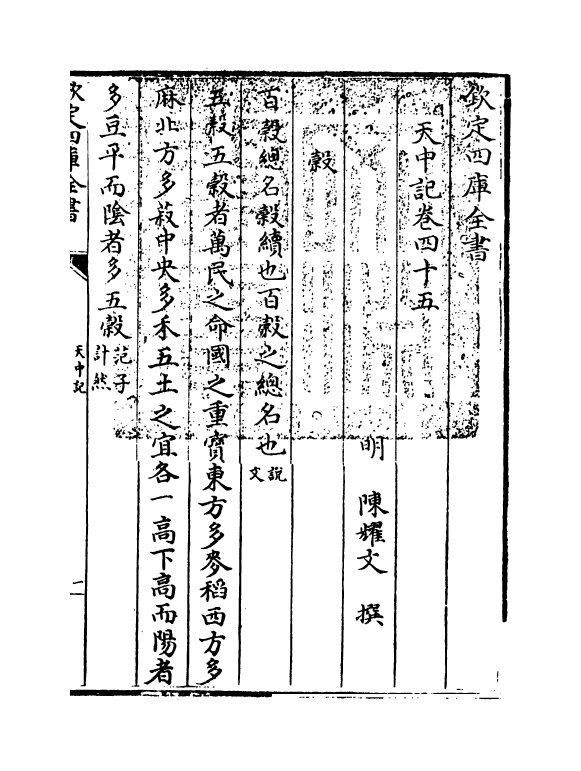 欽定四庫全書
天中記卷四十五
明　陳耀文　撰
穀
百穀總名穀續也百穀之總名也說文
五穀五穀者萬民之命國之重寶東方多麥稻西方多
麻北方多菽中央多禾五土之宜各一高下高而陽者
多豆平而陰者多五穀范子計然
欽定四庫全書
天中記